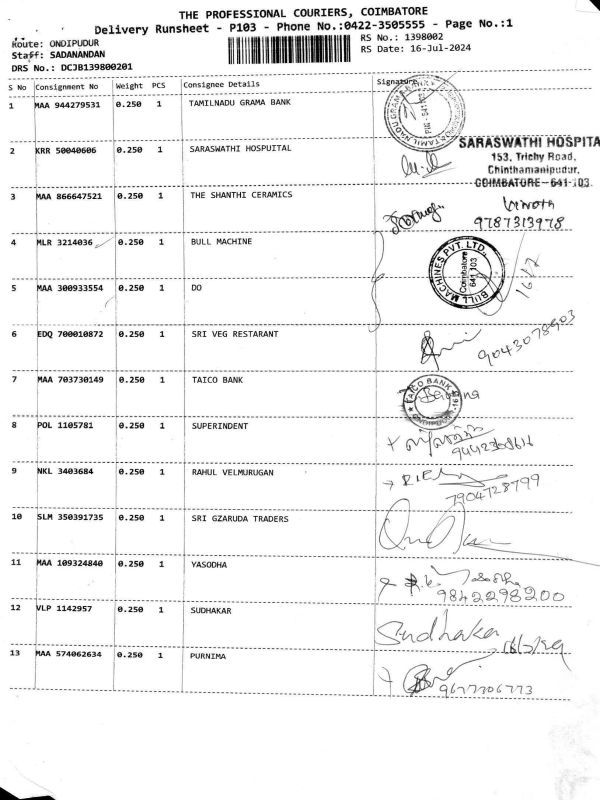 THE PROFESSIONAL COURIERS, COIMBATORE
Delivery Runsheet - P103 - Phone No.:0422-3505555 - Page No.:1
Route: ONDIPUDUR
RS No.: 1398002
Staff: SADANANDAN
RS Date: 16-Jul-2024
DRS No.: DCJB139800201
S No Consignment No Weight PCS Consignee Details Signature
1 MAA 944279531 0.250 1 TAMILNADU GRAMA BANK
2 KRR 50040606 0.250 1 SARASWATHI HOSPUITAL
SARASWATHI HOSPITA
153, Trichy Road,
Chinthamanipudur,
COIMBATORE - 641 103.
3 MAA 866647521 0.250 1 THE SHANTHI CERAMICS
9787313978
4 MLR 3214036 0.250 1 BULL MACHINE
BULL MACHINES PVT. LTD.,
Coimbatore
641 103
16/7
5 MAA 300933554 0.250 1 DO
6 EDQ 700010872 0.250 1 SRI VEG RESTARANT
9043078903
7 MAA 703730149 0.250 1 TAICO BANK
TAICO BANK
8 POL 1105781 0.250 1 SUPERINDENT
9 NKL 3403684 0.250 1 RAHUL VELMURUGAN
7904728799
10 SLM 350391735 0.250 1 SRI GZARUDA TRADERS
11 MAA 109324840 0.250 1 YASODHA
9842298200
12 VLP 1142957 0.250 1 SUDHAKAR
Sudhakar
13 MAA 574062634 0.250 1 PURNIMA
9677706773